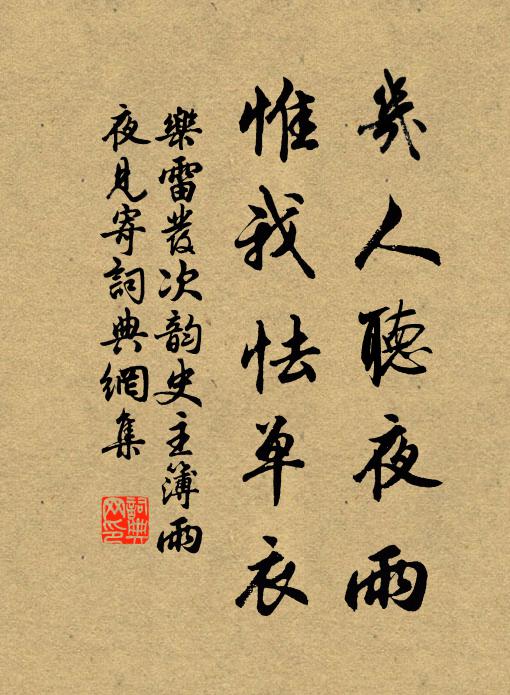 幾人聽夜雨
惟我怯单衣
樂雷發次韵史主簿雨
夜見寄詞典網集
詞典
网印